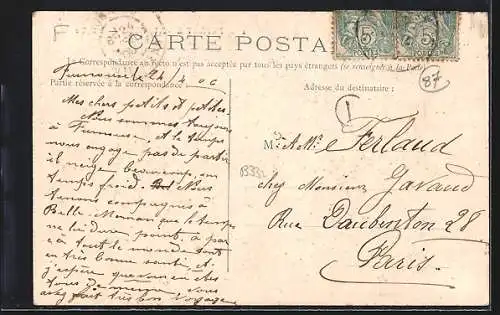 CARTE POSTA
La Correspondance au recto n'est pas acceptée par tous les pays étrangers (se renseigner à la Poste)
24/4 06
Partie réservée à la correspondance
Adresse du destinataire :
87
1
Mes chers petits et petites.
Nous sommes toujours
à et le temps
nous engage pas de partir
il neige beaucoup, un
temps froid. Nous
tenons compagnie à
Belle-Maman que le temps
ne lui dure point, à par
ça tout le monde sont
en très bonne santé, et
j'espère que vous en êtes
tous de même. Vous
avez fait très bon voyage
13332
M. & Mme Ferlaud
chez Monsieur Gavaud
Rue Daubenton 28
Paris.